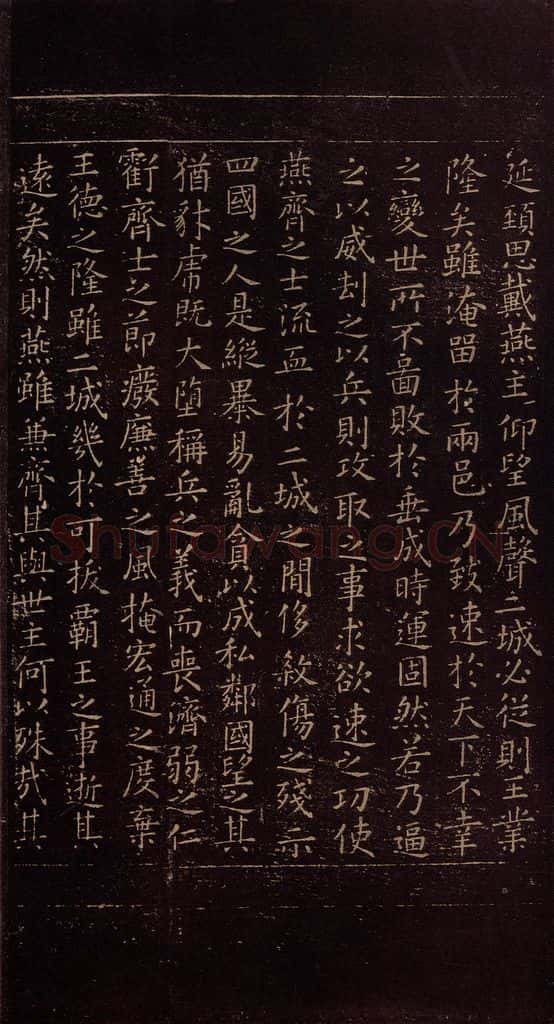 延頸思戴燕主仰望風聲二城必從則王業
隆矣雖淹留於兩邑乃致速於天下不幸
之變世所不啚敗於垂成時運固然若乃逼
之以威刼之以兵則攻取之事求欲速之功使
燕齊之士流血於二城之閒侈殺傷之殘示
四國之人是縱暴易亂貪以成私鄰國望之其
猶豺虎既大墮稱兵之義而喪濟弱之仁
虧齊士之節廢廉善之風掩宏通之度棄
王德之隆雖二城幾於可拔霸王之事逝其
遠矣然則燕雖兼齊其與世主何以殊哉其
Shufawang.CN